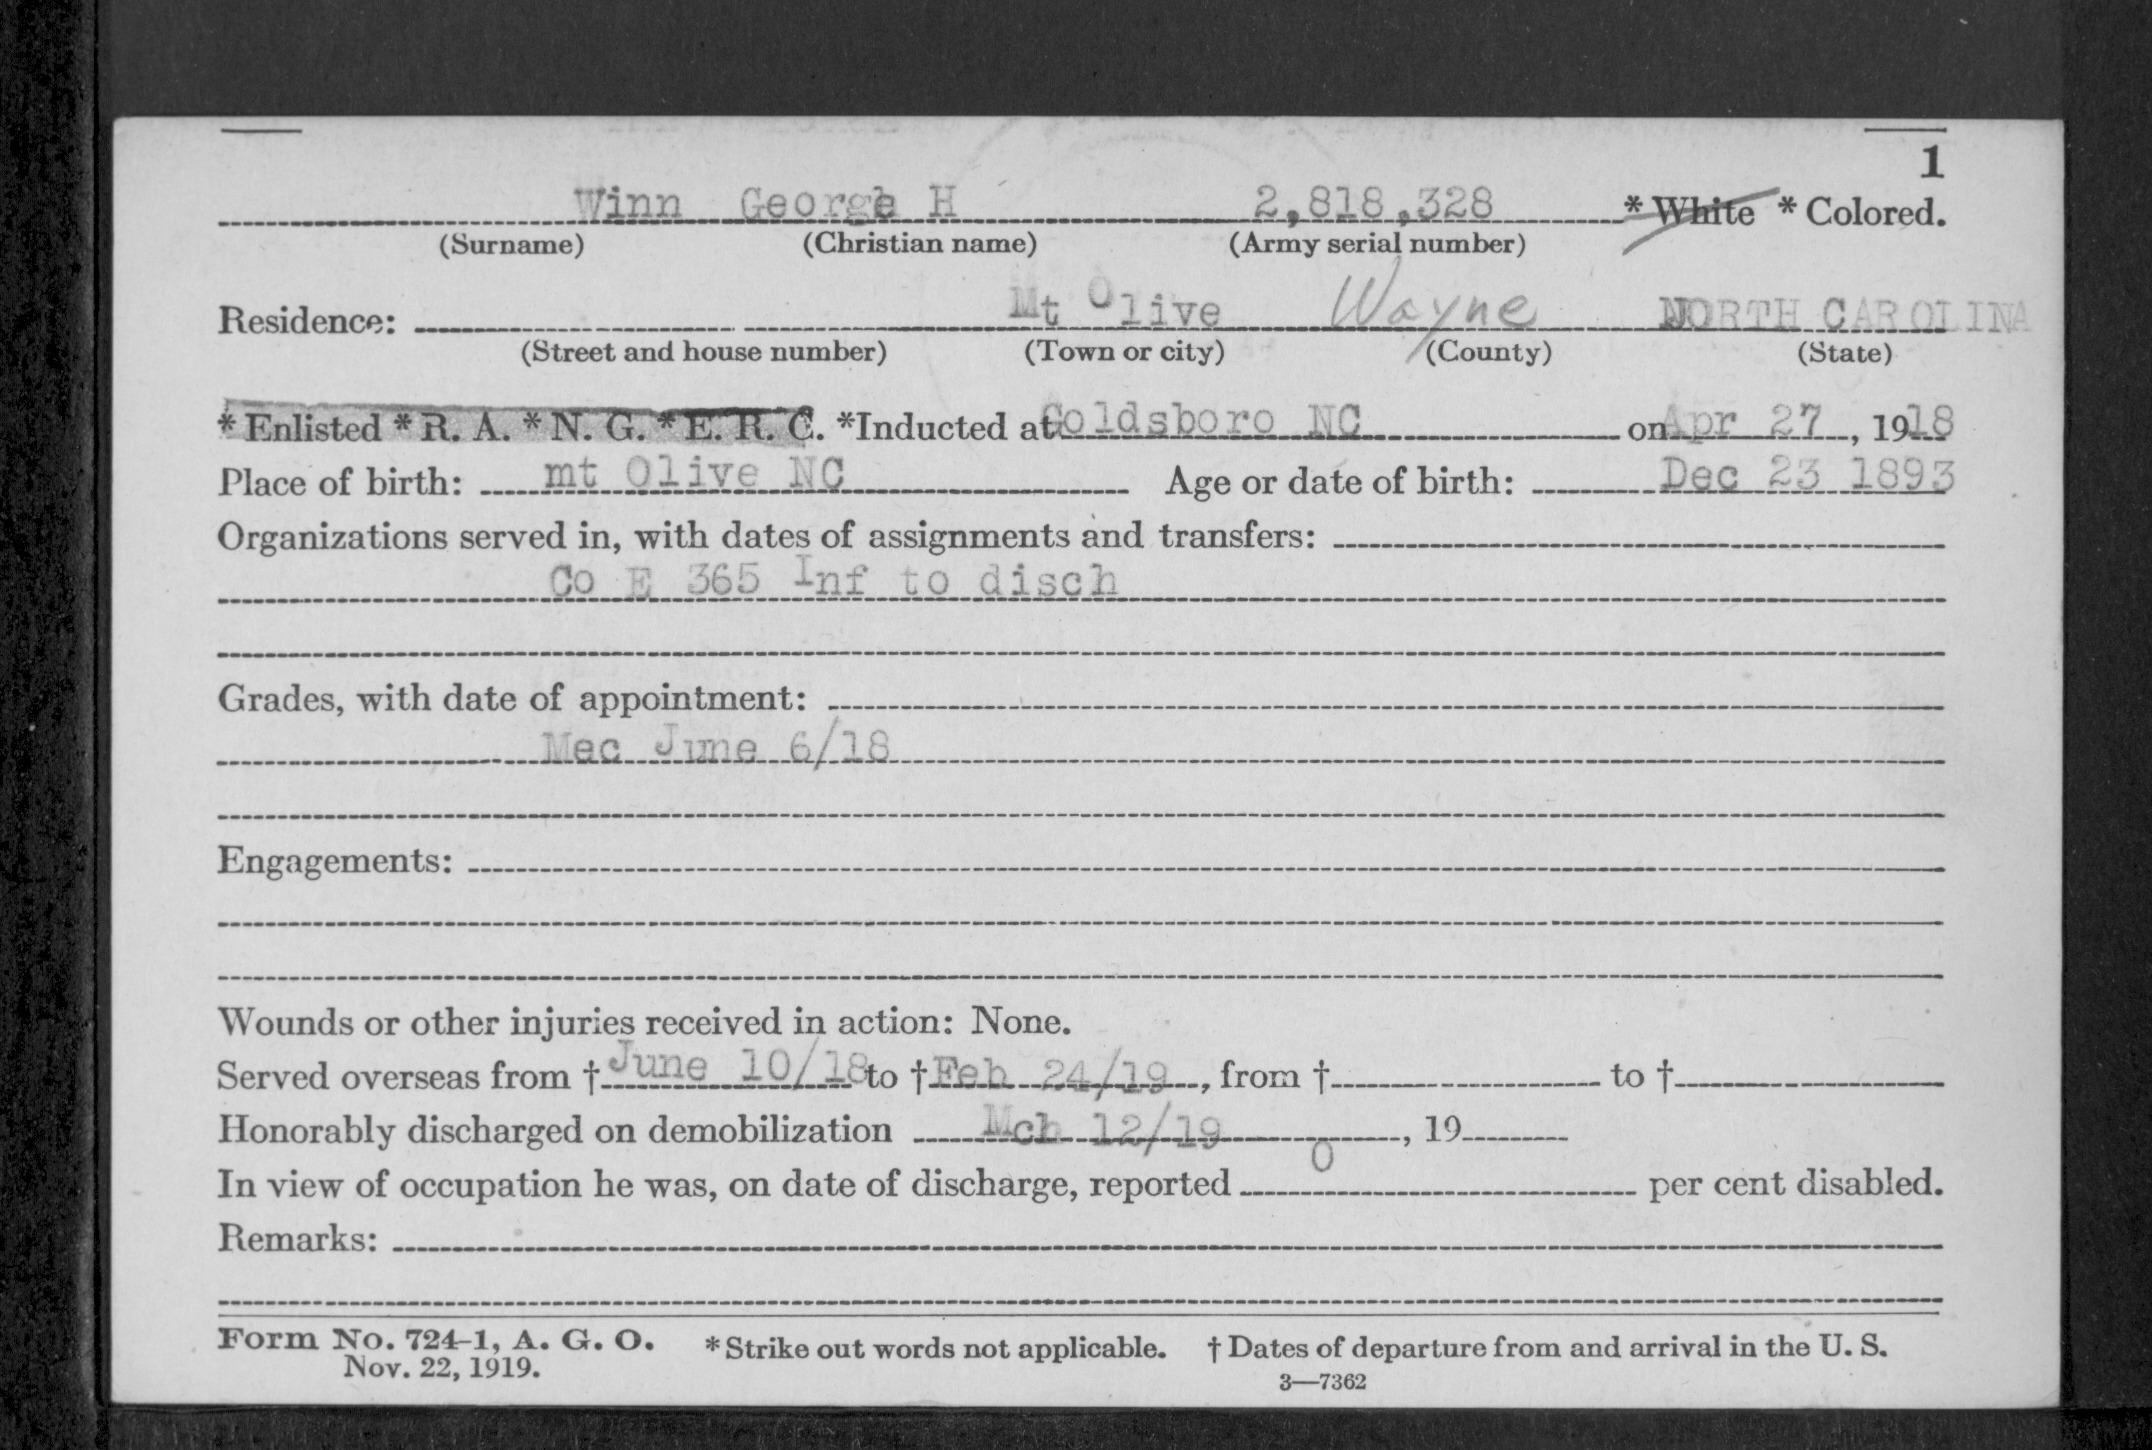 1
Winn George H 2,818,328 * White * Colored.
(Surname) (Christian name) (Army serial number)
Residence: Mt Olive Wayne NORTH CAROLINA
(Street and house number) (Town or city) (County) (State)
* Enlisted * R. A. * N. G. * E. R. C. *Inducted at Goldsboro NC on Apr 27, 1918
Place of birth: mt Olive NC Age or date of birth: Dec 23 1893
Organizations served in, with dates of assignments and transfers:
Co E 365 Inf to disch
Grades, with date of appointment:
Mec June 6/18
Engagements:
Wounds or other injuries received in action: None.
Served overseas from † June 10/18 to † Feb 24/19, from † to †
Honorably discharged on demobilization Mch 12/19, 19
In view of occupation he was, on date of discharge, reported 0 per cent disabled.
Remarks:
Form No. 724-1, A. G. O. * Strike out words not applicable. † Dates of departure from and arrival in the U. S.
Nov. 22, 1919. 3—7362